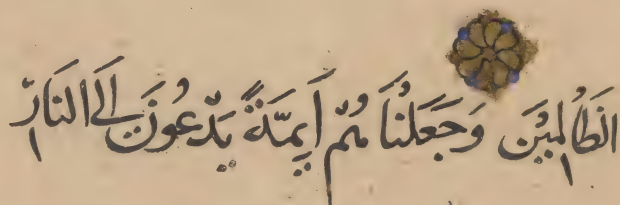 الظالمين وجعلناهم أيمة يدعون إلى النار